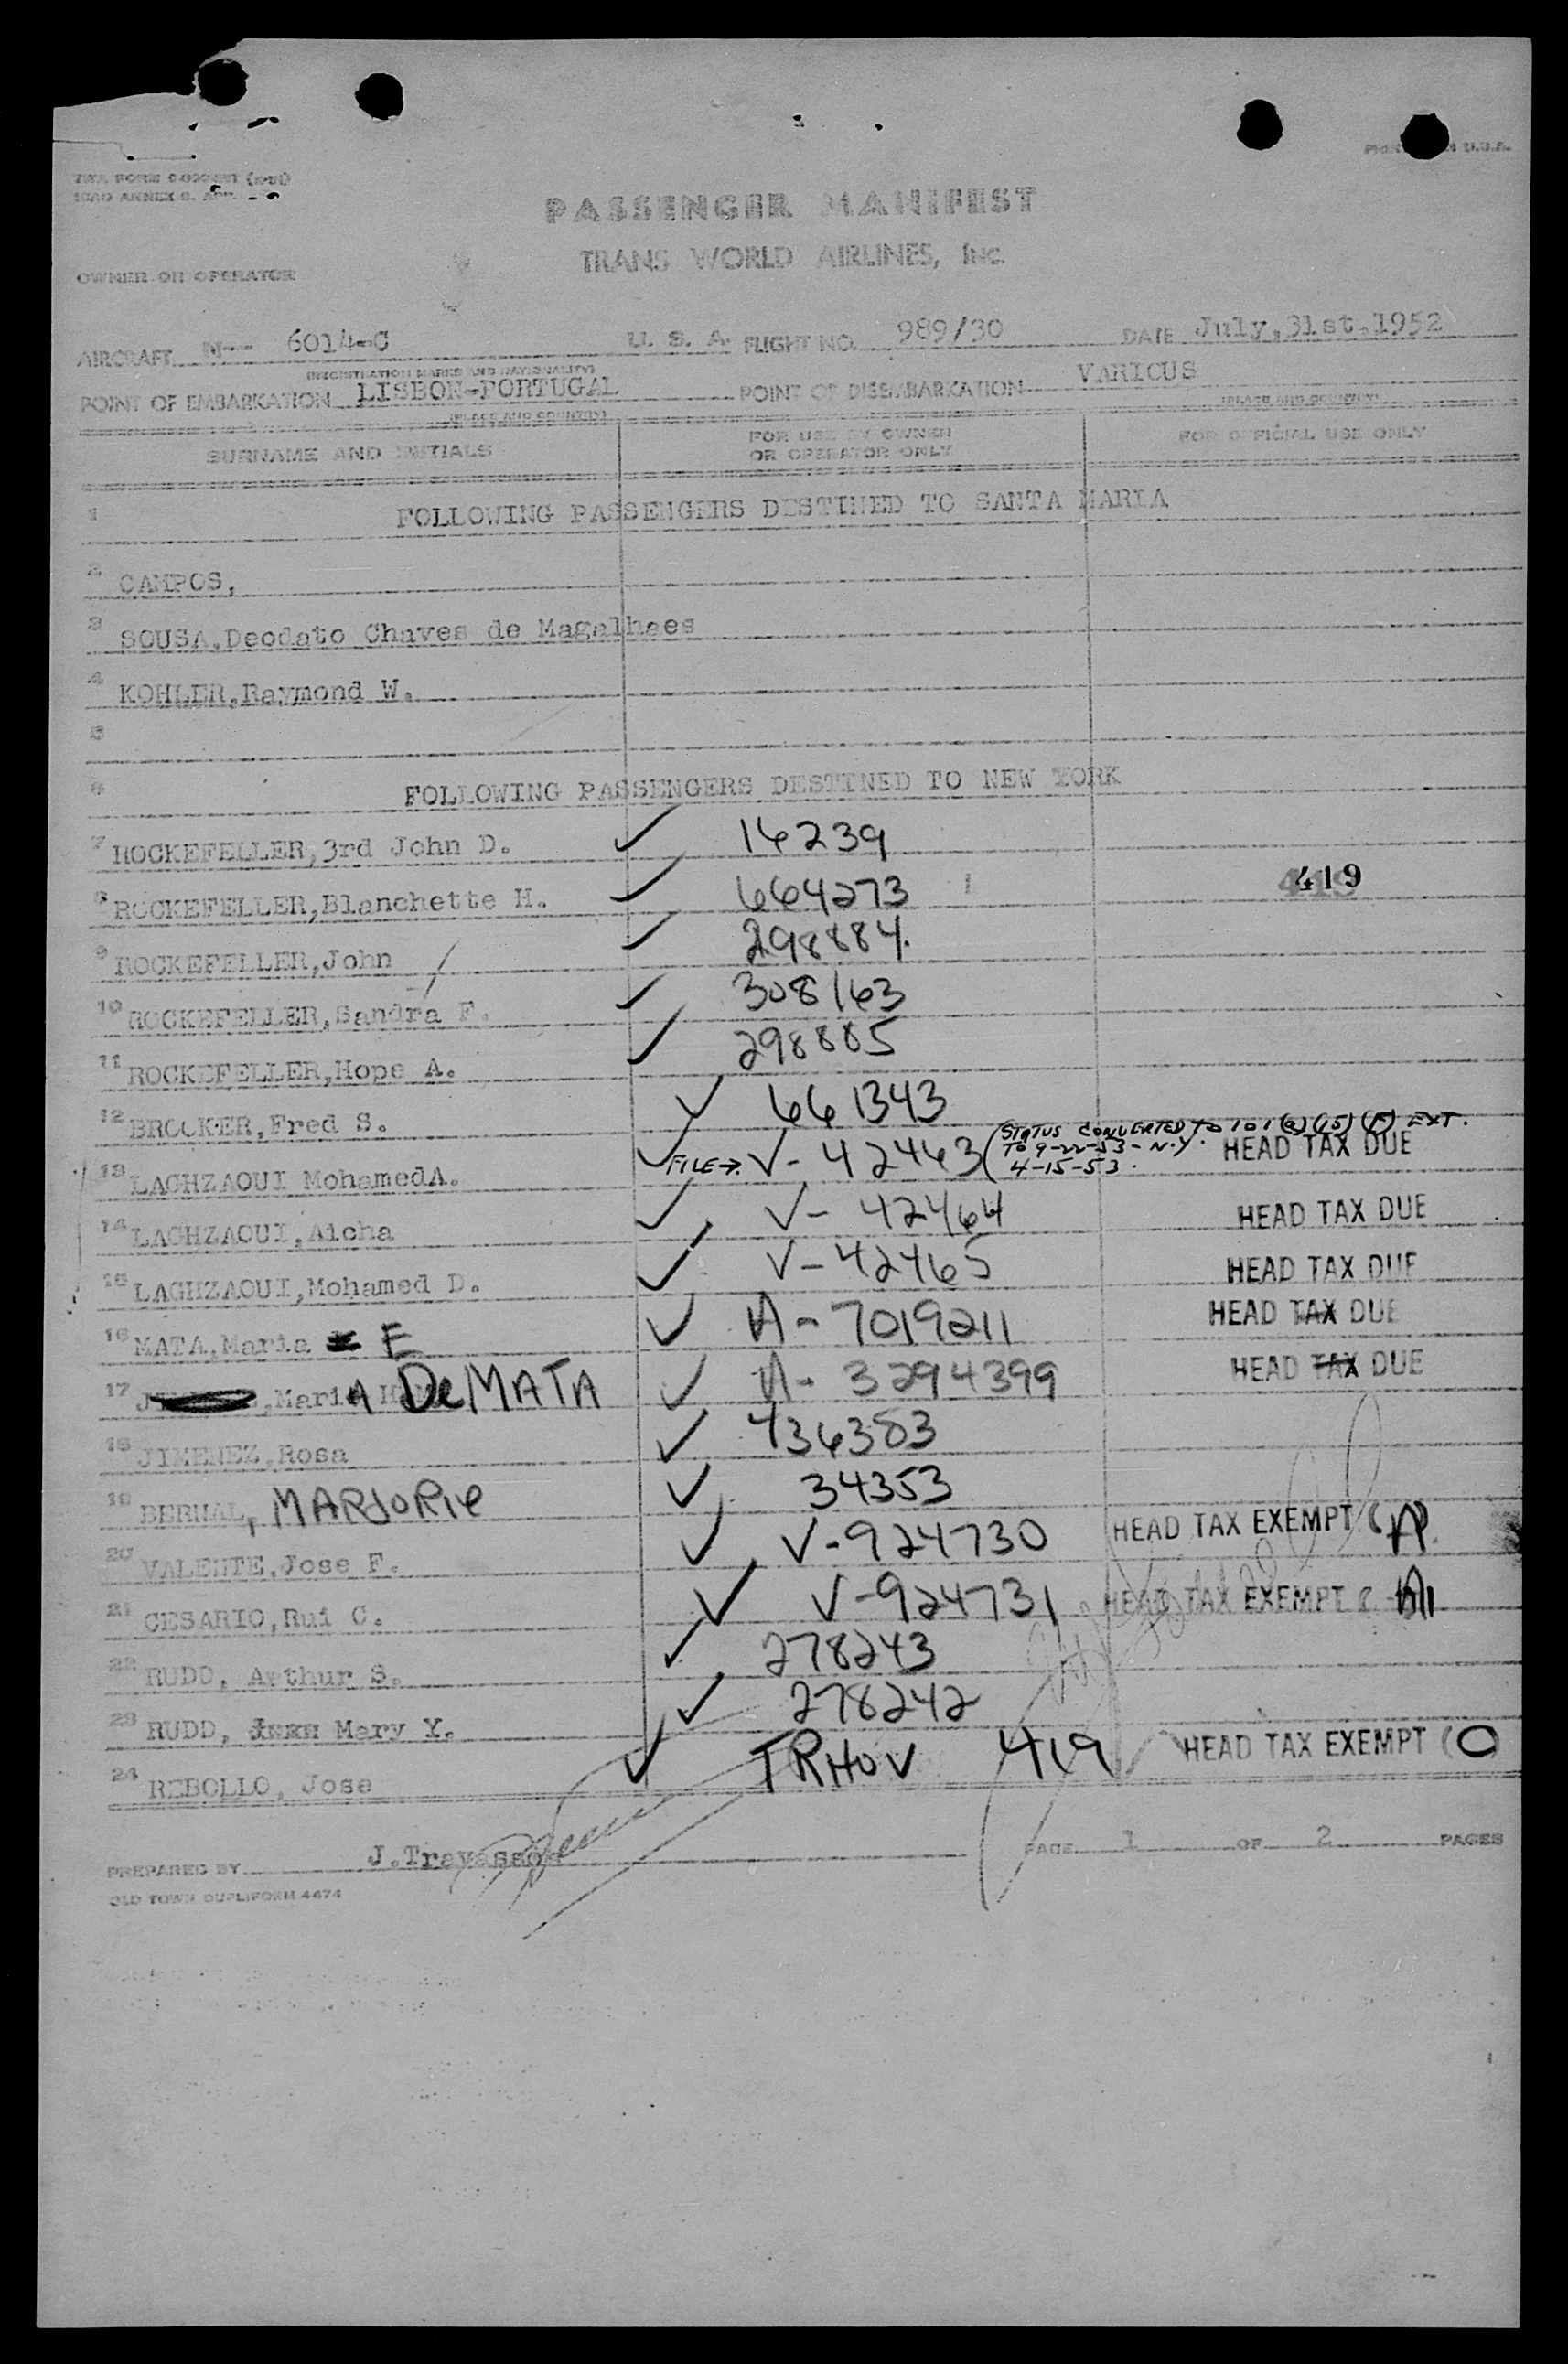 PRINTED IN U.S.A.
PASSENGER MANIFEST
TRANS WORLD AIRLINES, INC.
OWNER OR OPERATOR
AIRCRAFT N-- 6014-C U. S. A. FLIGHT NO. 989/30 DATE July,31st.1952
(REGISTRATION MARKS AND NATIONALITY)
POINT OF EMBARKATION LISBON-PORTUGAL POINT OF DISEMBARKATION VARIOUS
(PLACE AND COUNTRY) (PLACE AND COUNTRY)
SURNAME AND INITIALS FOR USE BY OWNER OR OPERATOR ONLY FOR OFFICIAL USE ONLY
1 FOLLOWING PASSENGERS DESTINED TO SANTA MARIA
2 CAMPOS,
3 SOUSA,Deodato Chaves de Magalhaes
4 KOHLER,Raymond W.
5
6 FOLLOWING PASSENGERS DESTINED TO NEW YORK
7 ROCKEFELLER,3rd John D. ✓ 16239
8 ROCKEFELLER,Blanchette H. ✓ 664273 419
9 ROCKEFELLER,John ✓ 298884.
10 ROCKEFELLER,Sandra F. ✓ 308163
11 ROCKEFELLER,Hope A. ✓ 298885
12 BROCKER,Fred S. ✓ 661343
(STATUS CONVERTED TO 101(a)(15)(F) EXT.
TO 9-22-53-N.Y.
4-15-53.
13 LAGHZAOUI MohamedA. ✓ FILE→. V-42463 HEAD TAX DUE
14 LAGHZAOUI,Aicha ✓ V-42464 HEAD TAX DUE
15 LAGHZAOUI,Mohamed D. ✓ V-42465 HEAD TAX DUE
16 MATA,Maria E ✓ A-7019211 HEAD TAX DUE
17 MariA DeMATA ✓ A-3294399 HEAD TAX DUE
18 JIMENEZ,Rosa ✓ 436383
19 BERNAL, MARJORIE ✓ 34353
20 VALENTE,Jose F. ✓ V-924730 HEAD TAX EXEMPT (A)
21 CESARIO,Rui C. ✓ V-924731 HEAD TAX EXEMPT (
22 RUDD, Arthur S. ✓ 278243
23 RUDD, Mary Y. ✓ 278242
24 REBOLLO, Jose ✓ TRHOV 419 HEAD TAX EXEMPT (O
PREPARED BY J.Travassos PAGE 1 OF 2 PAGES
OLD TOWN DUPLIFORM 4474